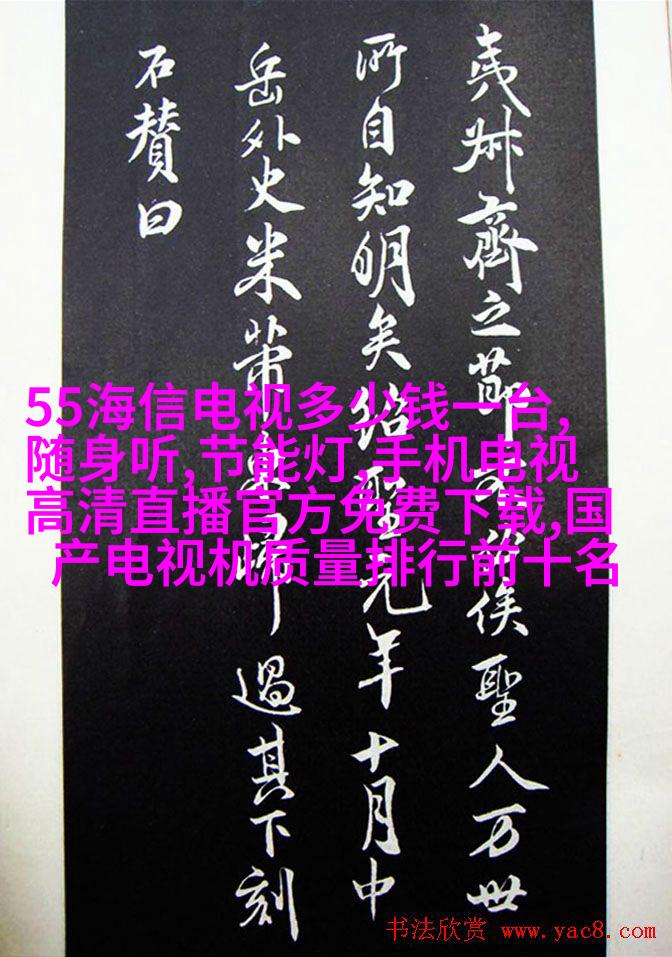 夷叔齊之莭俟聖人万世
所自知明矣紹聖元年十月中
岳外史米芾歸過其下刻
石賛曰
55海信电视多少钱一台,
随身听,节能灯,手机电视
高清直播官方免费下载,国
产电视机质量排行前十名
书法欣赏 www.yac8.com